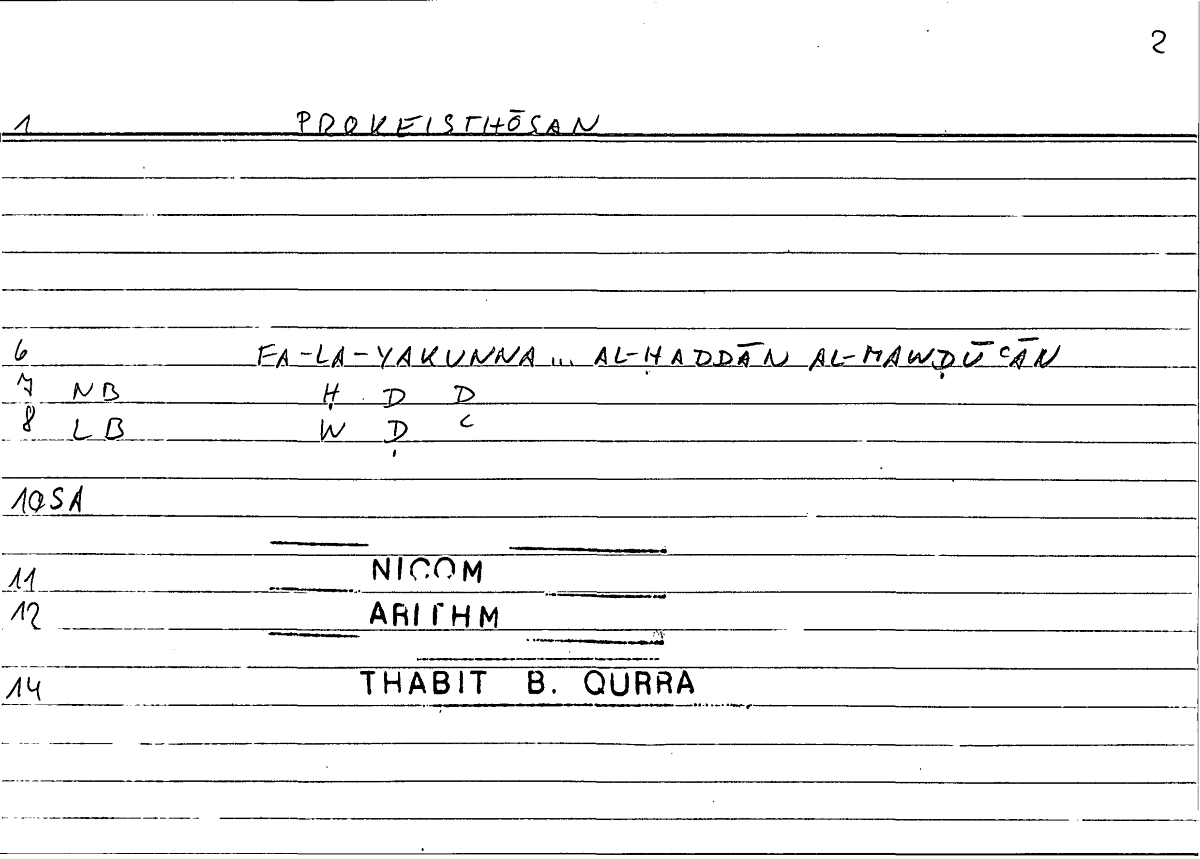 2
1 PROKEISTHŌSAN
6 FA-LA-YAKUNNA ... AL-ḤADDĀN AL-MAWḌŪʿĀN
7 NB Ḥ D D
8 LB W Ḍ ʿ
10 SA
11 NICOM
12 ARITHM
14 THABIT B. QURRA